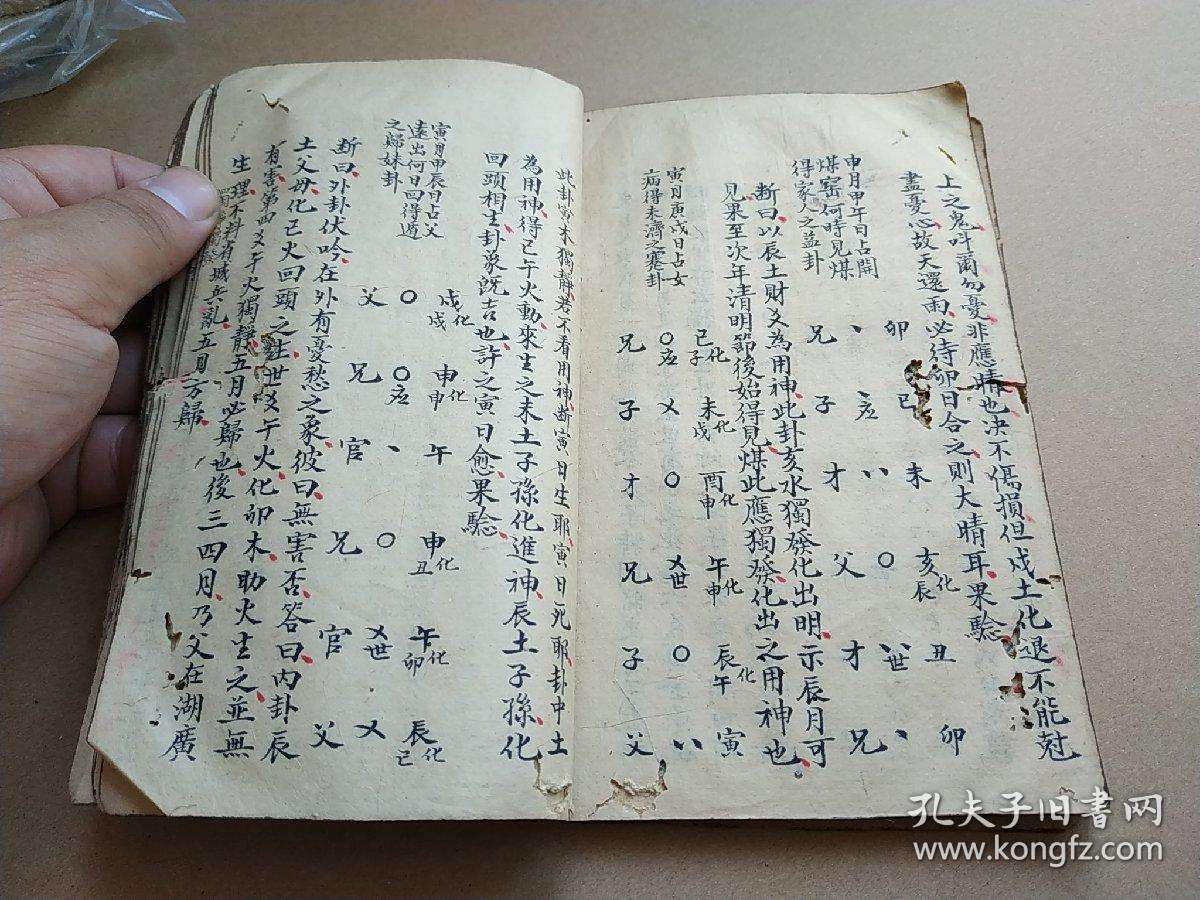 上之鬼吁爾勿憂非應晴也决不傷損但戍土化退不能尅
盡憂心故天還雨必待卯日合之則大晴耳果驗
申月甲午日占開
煤窑何時見煤
得家人之益卦
卯 巳 未 亥化辰 丑 卯
丶 丶應 〃 〇 〃世 丶
兄 子 才 父 才 兄
断曰以辰土財爻為用神此卦亥水獨發化出明示辰月可
見果至次年清明節後始得見煤此應獨發化出之用神也
寅月庚戍日占女
病得未濟之蹇卦
巳化子 未化戍 酉化申 午化申 辰化午 寅
〇應 乂 〇 乂世 〇 〃
兄 子 才 兄 子 父
此卦寅木獨靜若不看用神断寅日生耶寅日死耶卦中土
為用神得巳午火動來生之未土子孫化進神辰土子孫化
回頭相生卦象既吉也許之寅日愈果驗
寅月甲辰日占父
遠出何日回得遁
之歸妹卦
戍化戍 申化申 午 申化丑 午化卯 辰化巳
〇 〇應 丶 〇 乂世 乂
父 兄 官 兄 官 父
断曰外卦伏吟在外有憂愁之象彼曰無害否答曰内卦辰
土父母化巳火回頭之生世爻午火化卯木助火生之並無
有害第四爻午火獨靜五月必歸也後三四月乃父在湖廣
生理不料有贼兵亂五月方歸
孔夫子旧書网
www.kongfz.com